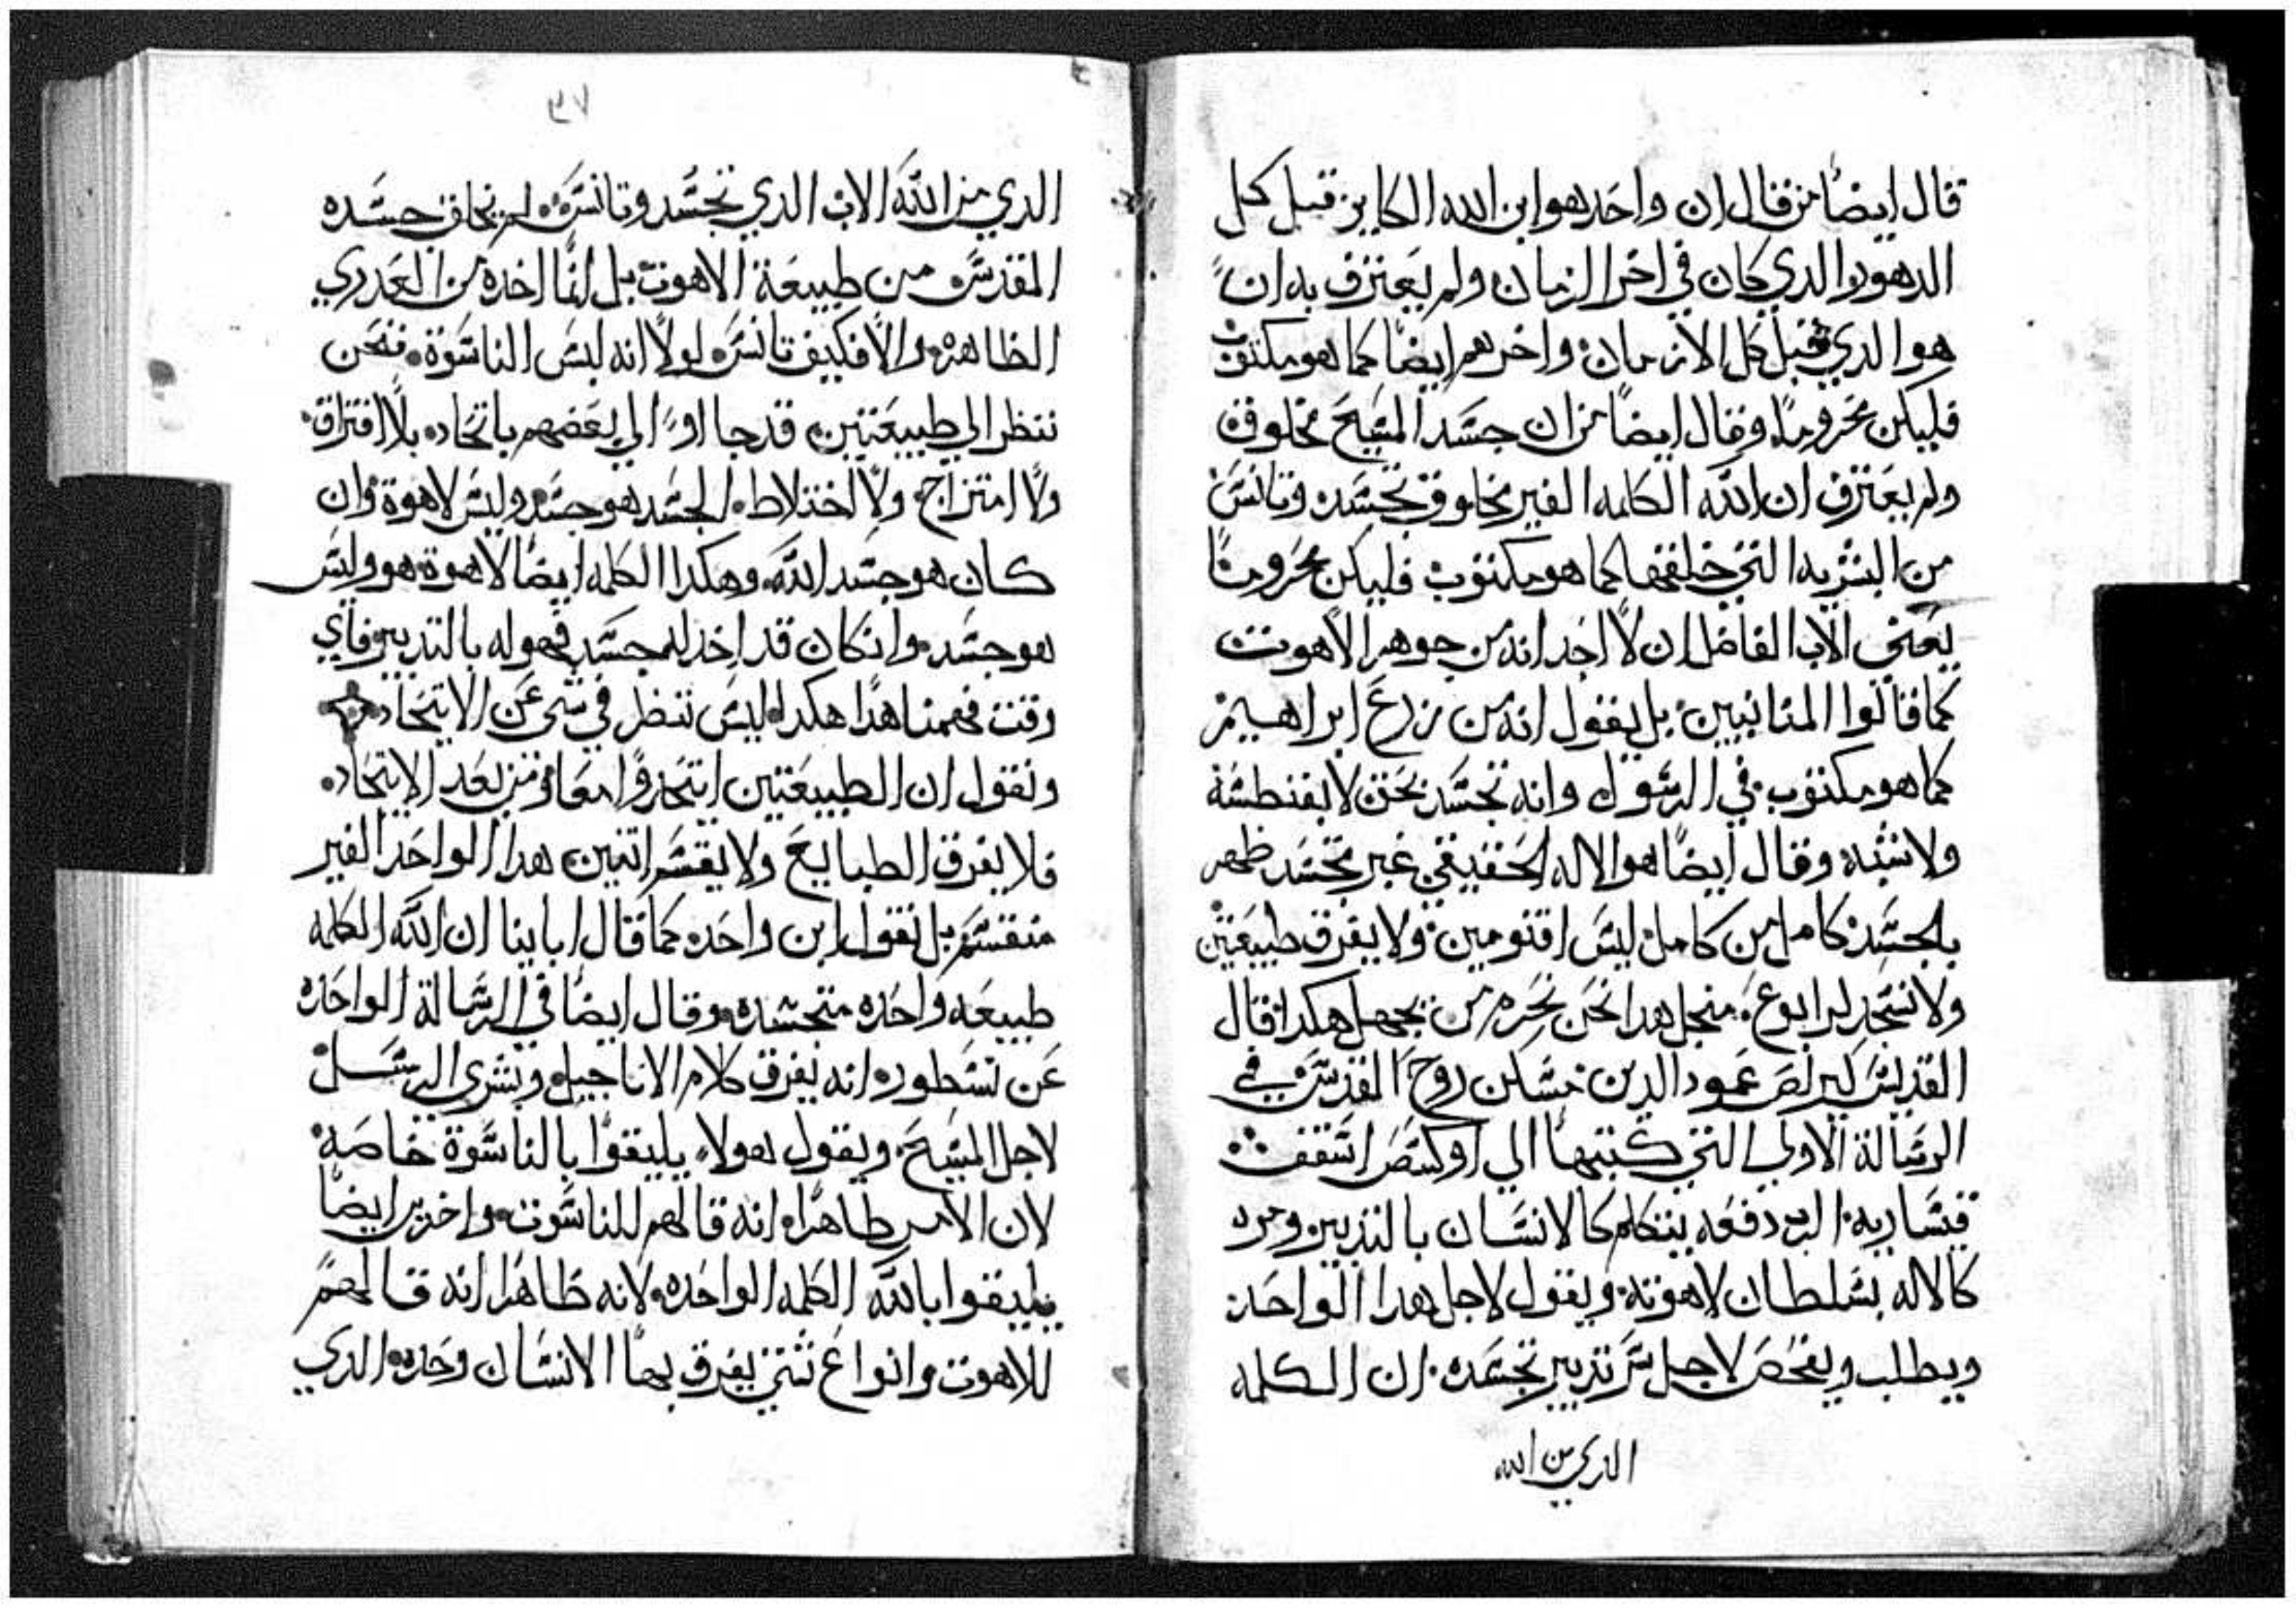 قال ايضا من قال ان واحد هو ابن الله الكاين قبل كل
الدهور والدي كان في اخر الزمان ولم يعترف به ان
هو الدي قبل كل الازمان واخرهم ايضا كما هو مكتوب
فليكن محروما وقال ايضا من ان جسد المسيح مخلوق
ولم يعترف ان الله الكلمه الغير مخلوق تجسد وتانس
من البشريه التي خلقها كما هو مكتوب فليكن محروما
يعني الاب الفاضل ان لا احد انه من جوهر الاهوت
كما قالوا المنانيين بل يقول انه من زرع ابراهيم
كما هو مكتوب في الرسول وانه تجسد بحق لا بفنطسة
ولا شبه وقال ايضا هو الاله الحقيقي غير متجسد ظهر
بالجسد كامل من كامل ليس اقنومين ولا يفرق طبيعتين
ولا نسجد لرابوع منجل هدا نحن نحرم من يجهل هكدا قال
القديس كيرلص عمود الدين مسكن روح القدس في
الرسالة الاولي التي كتبها الي اسقف
قيساريه دفعه يتكلم كالانسان بالتدبير ومره
كالاله بسلطان لاهوته ويقول لاجل هدا الواحد
ويطلب ويفحص لاجل سر تدبير تجسده ان الكلمه
الدي من الله
٣٧
الدي من الله الاب الدي تجسد وتانس لم نخلق جسده
المقدس من طبيعة الاهوت بل انما اخده من العدري
الطاهره والا فكيف تانس لولا انه لبس الناسوة فنحن
ننظر الي طبيعتين قد جااو الي بعضهم باتحاد بلا افتراق
ولا امتزاج ولا اختلاط الجسد هو جسد وليس لاهوة وان
كان هو جسد الله وهكدا الكلمه ايضا لاهوة هو وليس
هو جسد وانكان قد اخد له جسد فهو له بالتدبير فاي
وقت فهمنا هدا هكدا ليس ننظر في شي عن الاتحاد
ونقول ان الطبيعتين اتحدوا معا ومن بعد الاتحاد
فلا يفرق الطبايع ولا يقسم اتنين هدا الواحد الغير
منقسم بل نقول ابن واحد كما قال ابايينا ان الله الكلمه
طبيعه واحده متجسده وقال ايضا في الرسالة الواحده
عن نسطور انه يفرق كلام الاناجيل وبشري الرسل
لاجل المسيح ويقول هولاء يليقوا بالناسوة خاصه
لان الامر طاهرا انه قالهم للناسوت واخرين ايضا
يليقوا بالله الكلمه الواحده لانه ظاهرا انه قالهم
للاهوت وانواع شتي يفرق بها الانسان وحده الدي